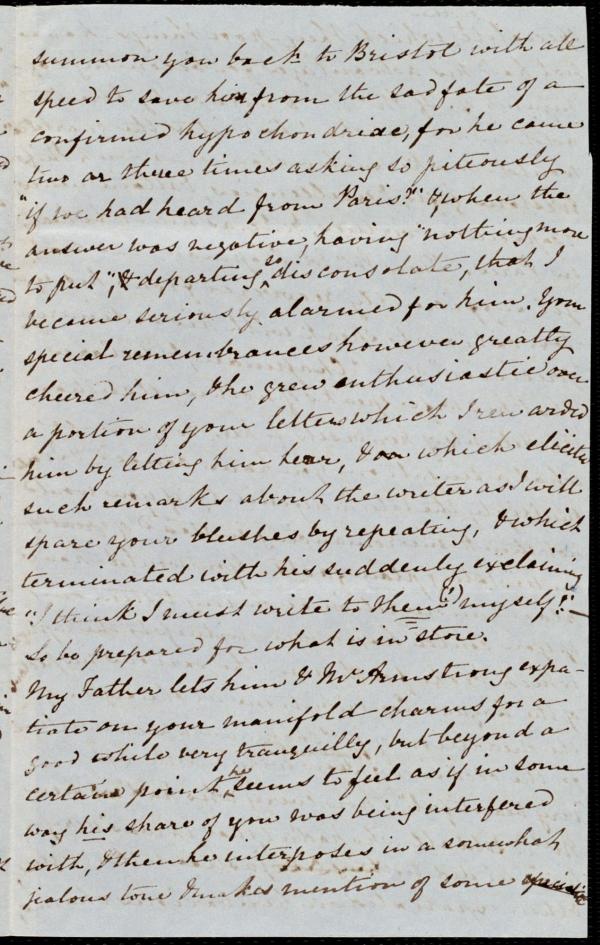 summon you back to Bristol with all
speed to save him from the sad fate of a
confirmed hypochondriac, for he came
two or three times asking so piteously
"if we had heard from Paris?" & when the
answer was negative, having "nothing more
to put", & departing so disconsolate, that I
became seriously alarmed for him. Your
special remembrances however greatly
cheered him, & he grew enthusiastic over
a portion of your letter which I rewarded
him by letting him hear, & which elicited
such remarks about the writer as I will
spare your blushes by repeating, & which
terminated with his suddenly exclaiming
"I think I must write to them (!) myself!" —
So be prepared for what is in store.
My Father lets him & Mr Armstrong expa-
tiate on your manifold charms for a
good while very tranquilly, but beyond a
certain point he seems to feel as if in some
way his share of you was being interfered
with, & then he interposes in a somewhat
jealous tone & makes mention of some